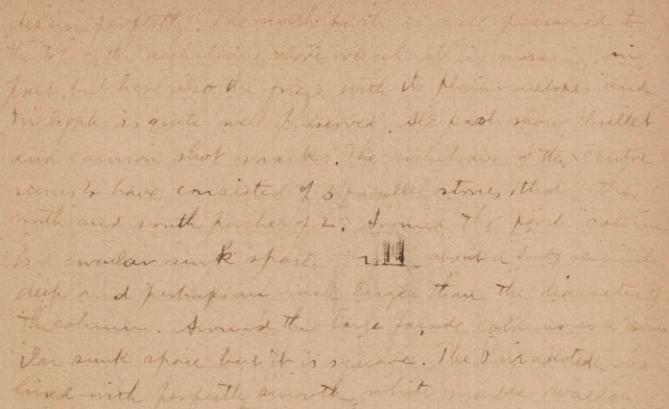 design perfectly. The north porch is well preserved to
the top of the architrave above which it is missing in
part, but here also the frieze with its plain metopes and
triglyphs is quite well preserved. All part show bullet
and cannon shot marks. The architrave of the centre
seems to have consisted of 3 parallel stones, that of the
north and south porches of 2. Around the porch columns
is a circular sunk space about a
deep and perhaps an inch larger than the diameter of
the column. Around the large façade columns is a sim
ilar sunk space but it is square. The Pinakotek was
lined with perfectly smooth white marble